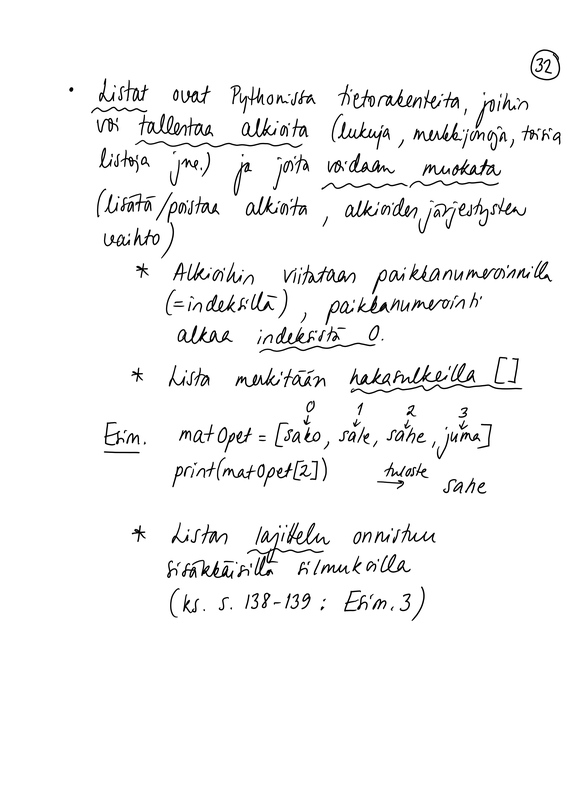 32
• Listat ovat Pythonissa tietorakenteita, joihin
voi tallentaa alkioita (lukuja, merkkijonoja, toisia
listoja jne.) ja joita voidaan muokata
(lisätä/poistaa alkioita, alkioiden järjestysten
vaihto)
* Alkioihin viitataan paikkanumeroinnilla
(=indeksillä), paikkanumerointi
alkaa indeksistä 0.
* Lista merkitään hakasulkeilla []
0 1 2 3
Esim. matOpet = [sako, sale, sahe, juma]
print(matOpet[2]) tuloste → sahe
* Listan lajittelu onnistuu
sisäkkäisillä silmukoilla
(ks. s. 138-139: Esim. 3)